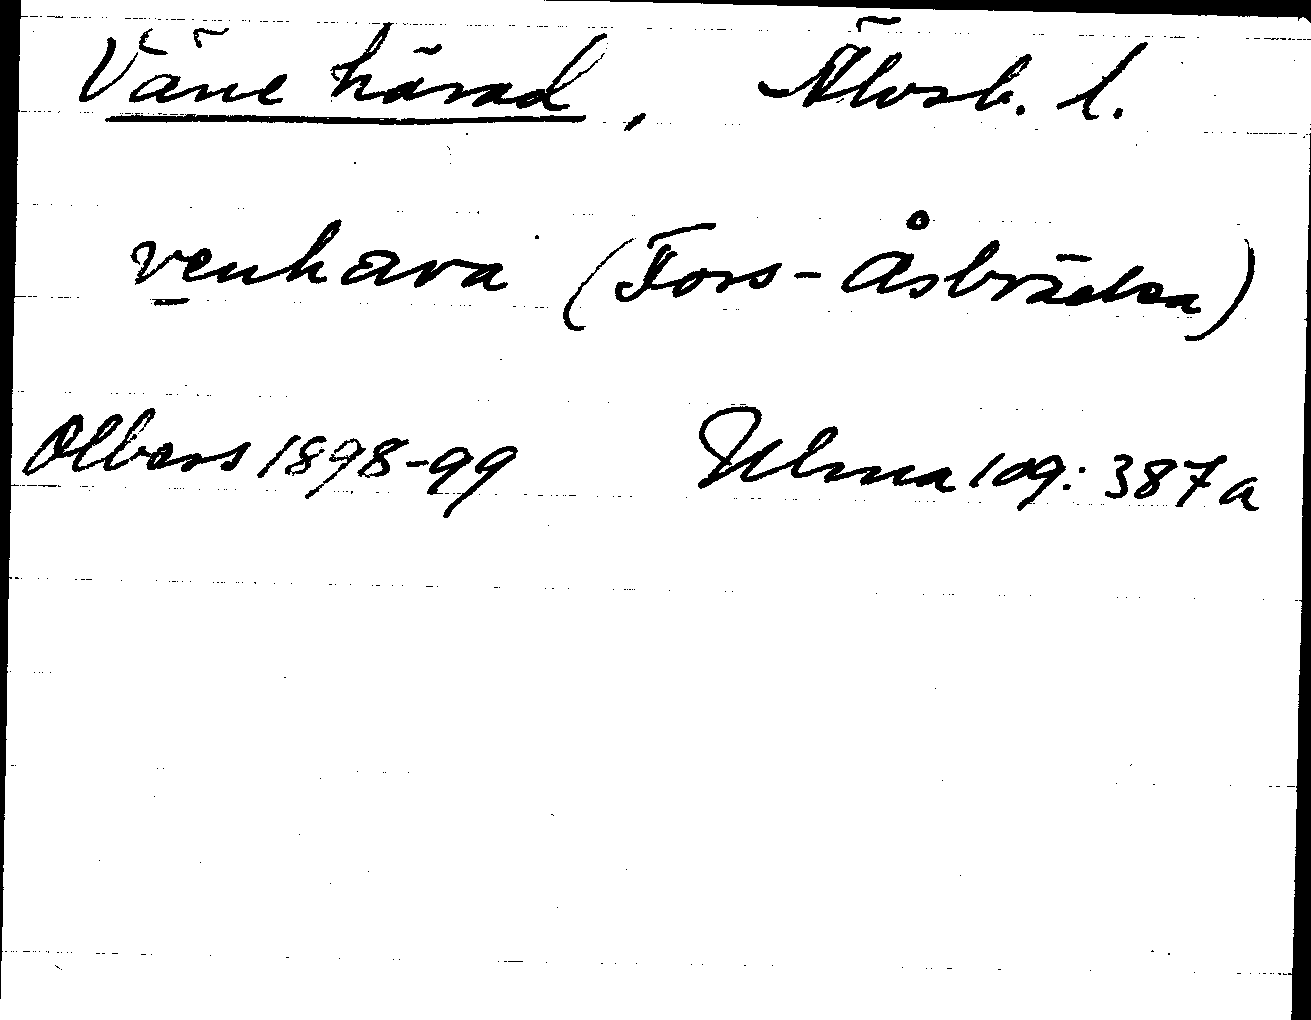 Väne härad, Älvsb. l.
venhava (Fors-Åsbräcka)
Olbers 1898-99 Ulma 109: 387a